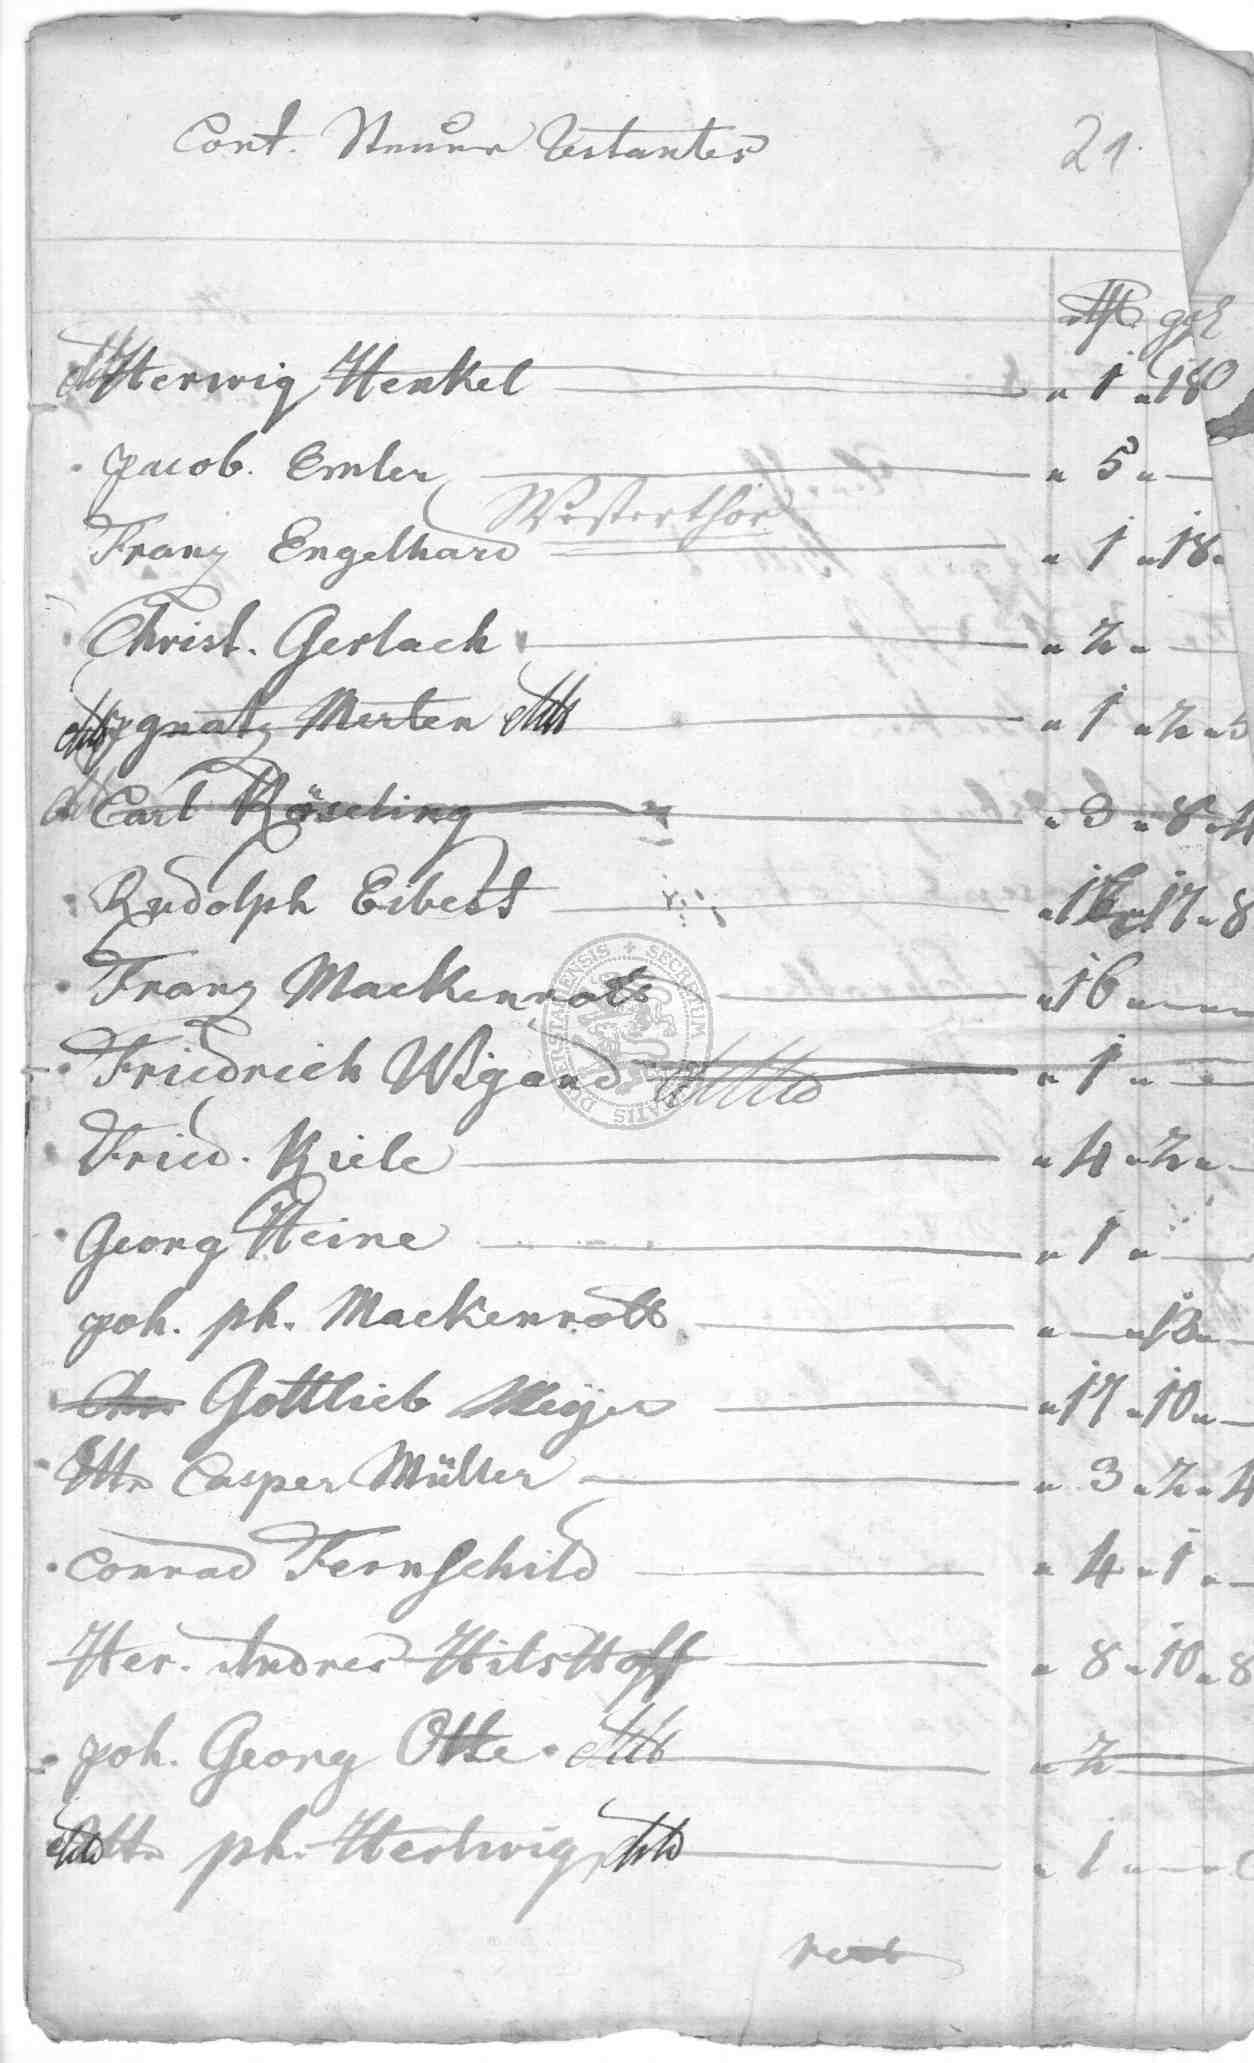 Cont. Steuer Restantes 21.
rthl ggl
Herwig Henkel — " 1 " 18
Jacob. Emler — " 5 " —
Westerthor
Franz Engelhard — " 1 " 18 "
Christ. Gerlach — " 2 " —
Ignatz Merten — " 1 " 2 " 5
Carl Röseling — " 3 " 8 " 4
Rudolph Eibert — " 16 " 17 " 8
Franz Mackenrott — " 16 " — " —
Friedrich Wigand — " 1 " —
Fried. Kiele — " 4 " 2 " —
Georg Heine — " 1 " —
Joh. ph. Mackenrott — " — " 13 " —
Gottlieb Meÿer — " 17 " 10 " —
Casper Müller — " 3 " 2 " 4
Conrad Fernschild — " 4 " 1 " —
Her. Andres Hilshoff — " 8 " 10 " 8
Joh. Georg Otte — " 2 —
ph. Hertwig — " 1 " —
SECRETUM DUDERSTADIENSIS